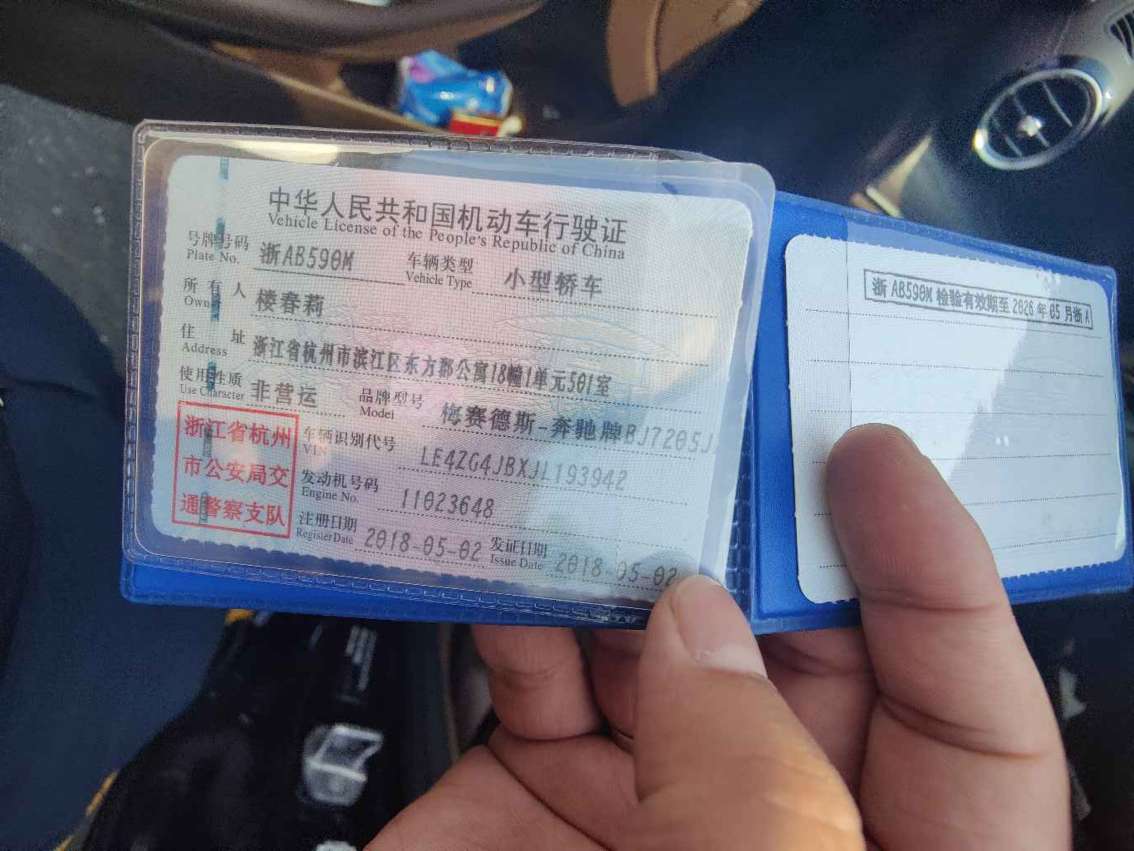 中华人民共和国机动车行驶证
Vehicle License of the People's Republic of China
号牌号码 浙AB590M 车辆类型 小型轿车
Plate No. Vehicle Type
所有人 楼春莉
Owner
住址 浙江省杭州市滨江区东方郡公寓18幢1单元501室
Address
使用性质 非营运 品牌型号 梅赛德斯-奔驰牌BJ7205J
Use Character Model
浙江省杭州
市公安局交
通警察支队
车辆识别代号 LE4ZG4JBXJL193942
VIN
发动机号码 11023648
Engine No.
注册日期 2018-05-02 发证日期 2018-05-02
Register Date Issue Date
浙AB590M 检验有效期至2026年05月浙A